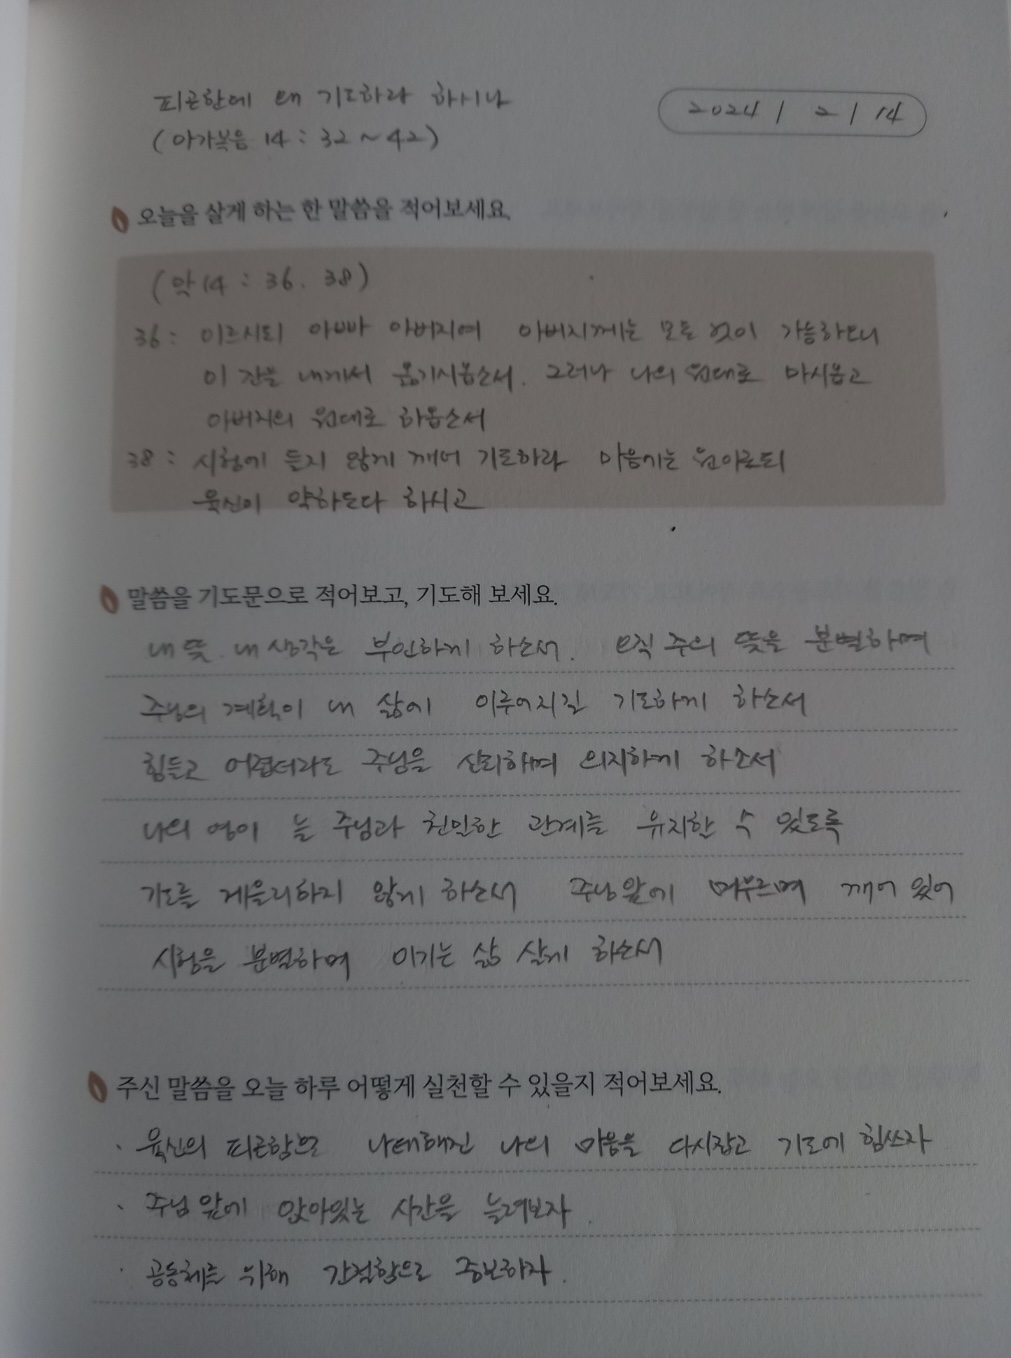 피곤한데 왜 기도하라 하시나
2024 / 2 / 14
(마가복음 14 : 32 ~ 42)
오늘을 살게 하는 한 말씀을 적어보세요.
(막 14 : 36. 38)
36 : 이르시되 아빠 아버지여 아버지께는 모든 것이 가능하오니
이 잔을 내게서 옮기시옵소서. 그러나 나의 원대로 마시옵고
아버지의 원대로 하옵소서
38 : 시험에 들지 않게 깨어 기도하라 마음에는 원이로되
육신이 약하도다 하시고
말씀을 기도문으로 적어보고, 기도해 보세요.
내 뜻 내 생각은 부인하게 하소서. 오직 주의 뜻을 분별하며
주님의 계획이 내 삶에 이루어지길 기도하게 하소서
힘들고 어렵더라도 주님을 신뢰하며 의지하게 하소서
나의 영이 늘 주님과 친밀한 관계를 유지할 수 있도록
기도를 게을리하지 않게 하소서 주님 앞에 머무르며 깨어 있어
시험을 분별하며 이기는 삶 살게 하소서
주신 말씀을 오늘 하루 어떻게 실천할 수 있을지 적어보세요.
· 육신의 피곤함으로 나태해진 나의 마음을 다시잡고 기도에 힘쓰자
· 주님 앞에 앉아있는 시간을 늘려보자.
· 공동체를 위해 간절함으로 중보하자.